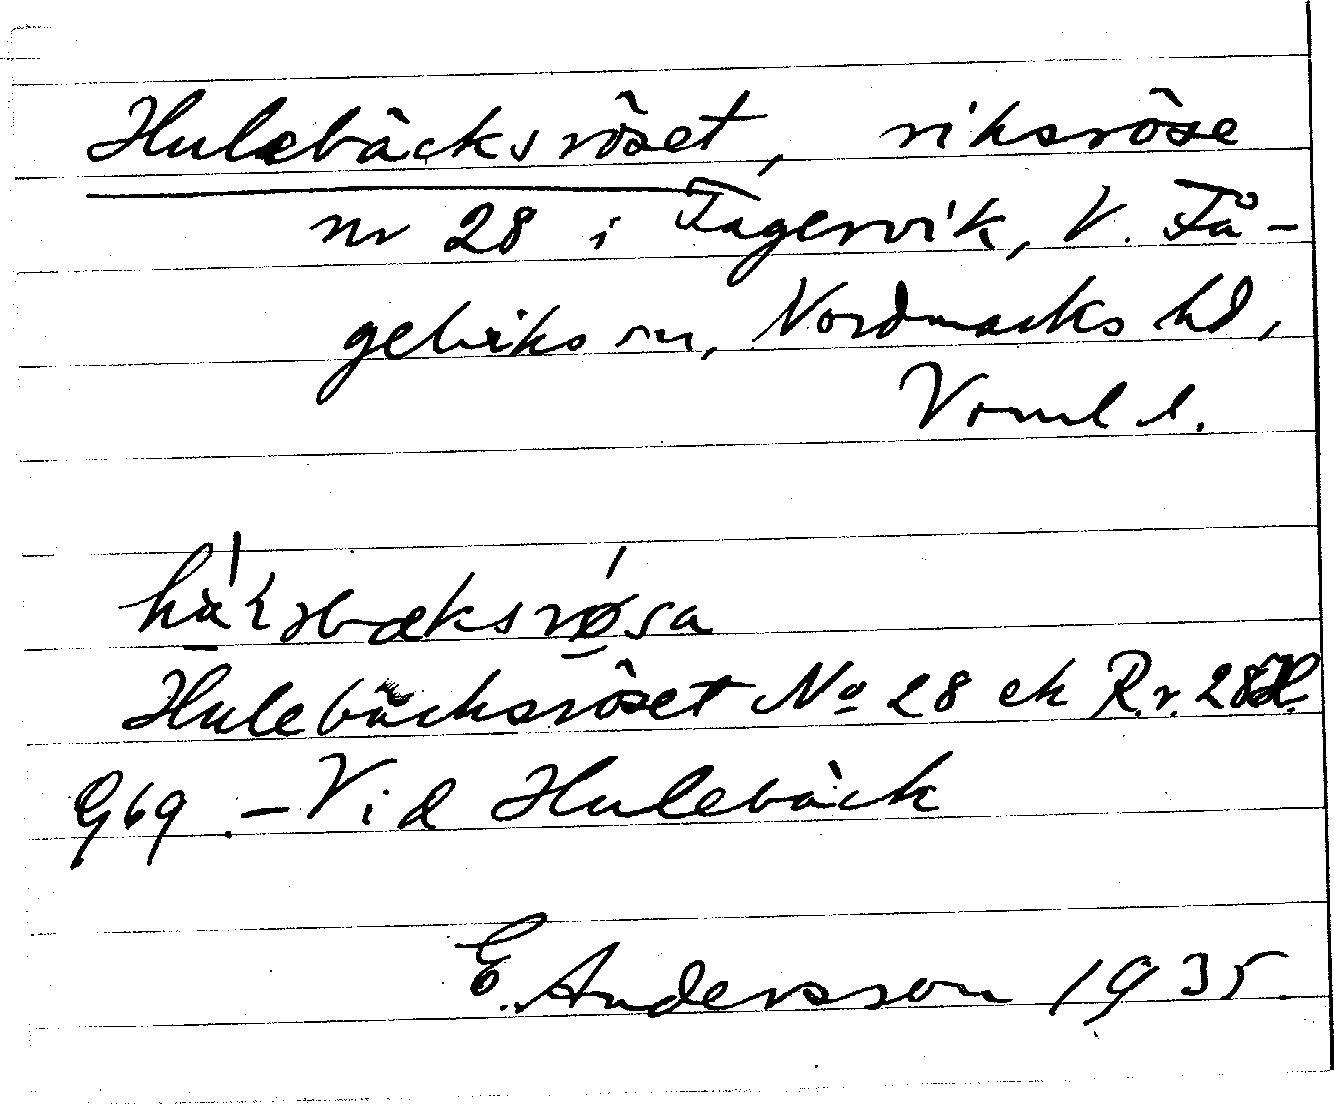 Hulebäcksröset, riksröse
nr 28 i Fagervik, V. Få-
gelviks sn, Nordmarks hd,
Värml.
Hulebäcksröset No 28 ek R.r. 28
G69. - Vid Hulebäck
E. Andersson 1935